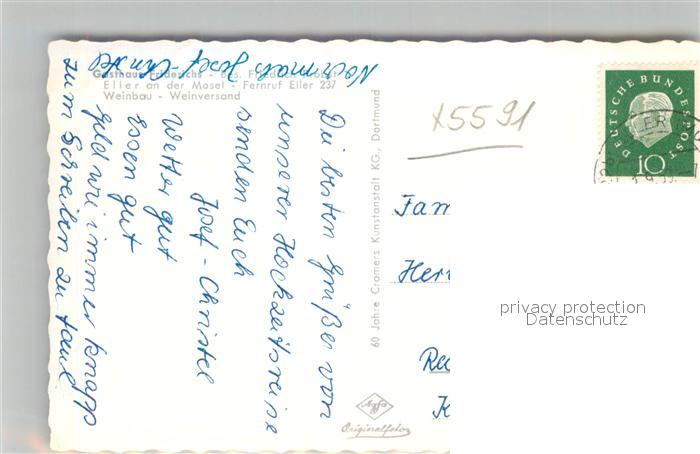 Gasthaus Friderichs - Bes.
Eller an der Mosel - Fernruf Eller 237
Weinbau - Weinversand
Die besten Grüße von
unserer Hochzeitsreise
senden Euch
Josef - Christel
Wetter gut
Essen gut
Geld wie immer knapp
zum Schreiben zu faul
Nochmals Josef - Christel
60 Jahre Cramers Kunstanstalt KG., Dortmund
x5591
DEUTSCHE BUNDESPOST
10
Fam
Herr
privacy protection
Datenschutz
Agfa
Originalfoto